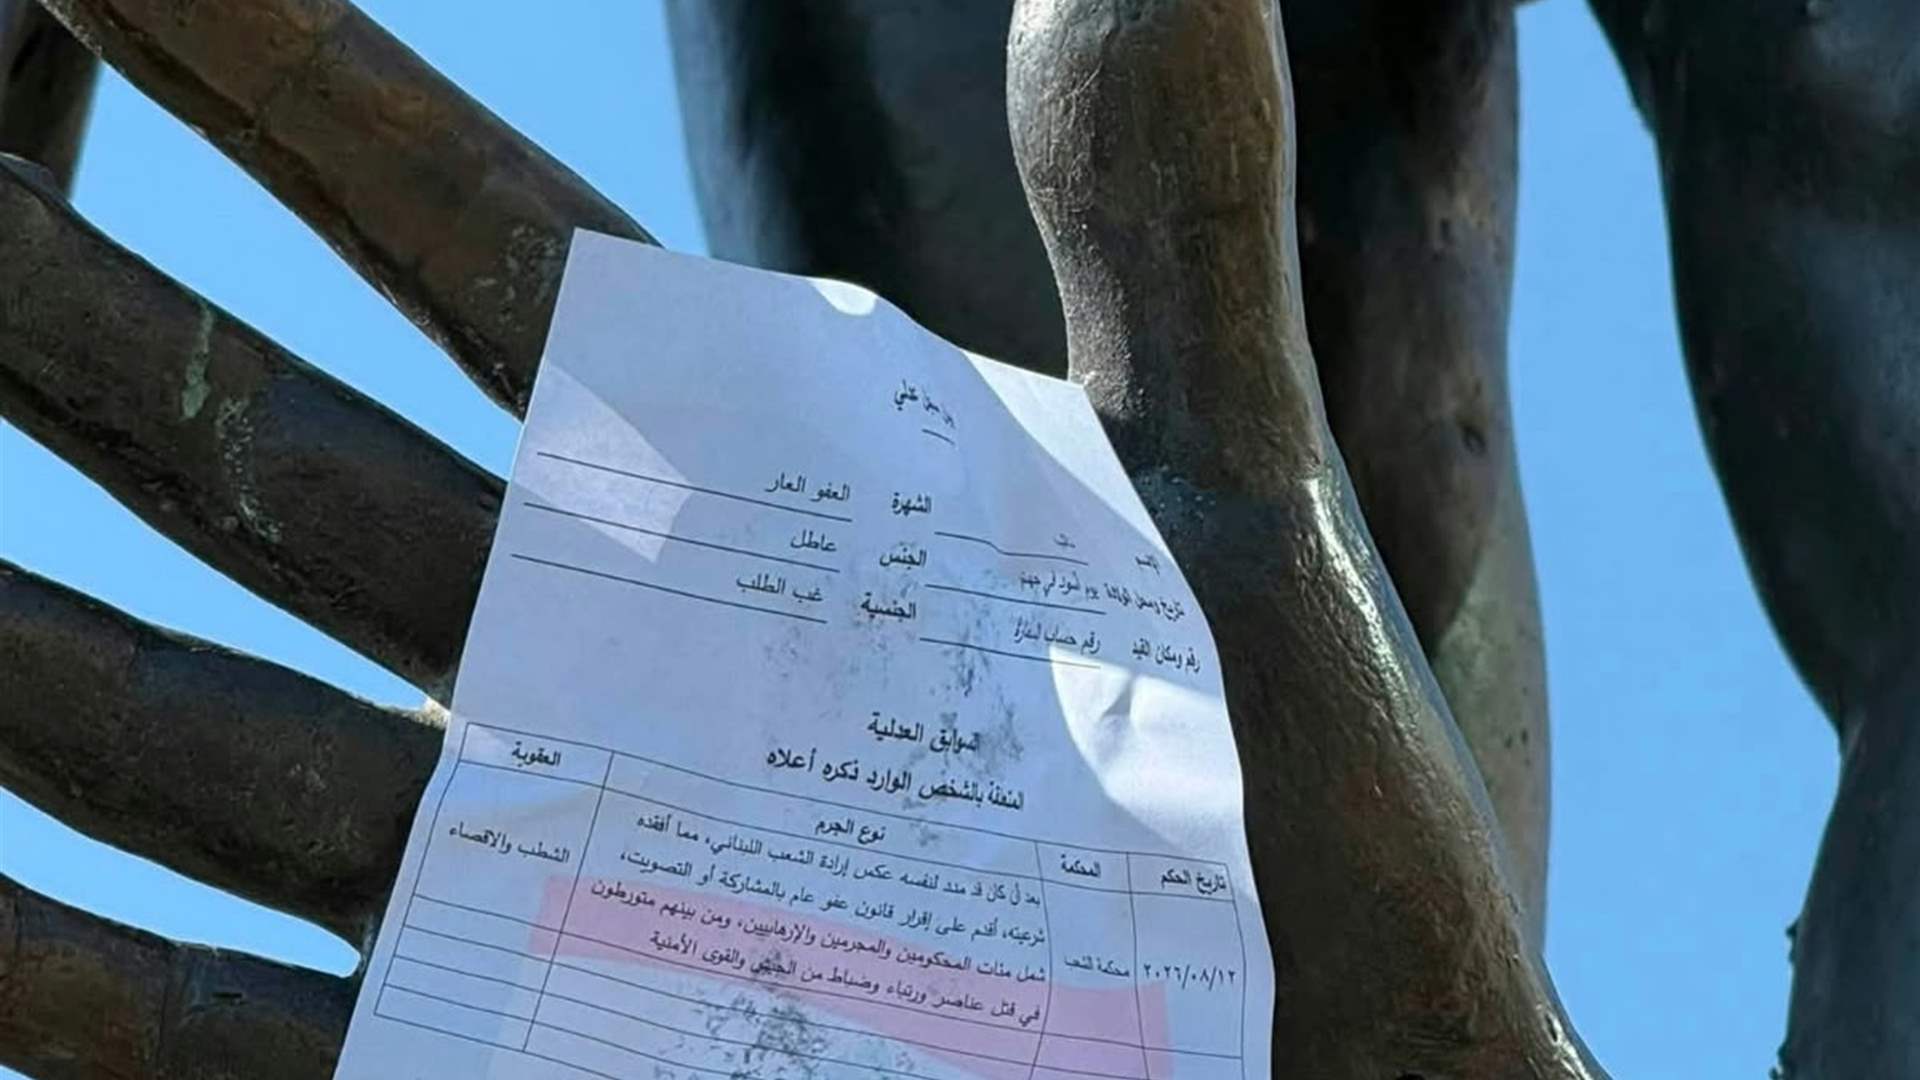 سجل عدلي
الشهرة العفو العار
تاريخ ومحل الولادة يوم أسود في جهنم الجنس عاطل
رقم ومكان القيد رقم حساب السفارة الجنسية غب الطلب
السوابق العدلية
المتعلقة بالشخص الوارد ذكره أعلاه
تاريخ الحكم المحكمة نوع الجرم العقوبة
٢٠٢٦/٠٨/١٢ محكمة الشعب
بعد أن كان قد مدد لنفسه عكس إرادة الشعب اللبناني، مما أفقده
شرعيته، أقدم على إقرار قانون عفو عام بالمشاركة أو التصويت،
شمل مئات المحكومين والمجرمين والإرهابيين، ومن بينهم متورطون
في قتل عناصر ورتباء وضباط من الجيش والقوى الأمنية
الشطب والاقصاء